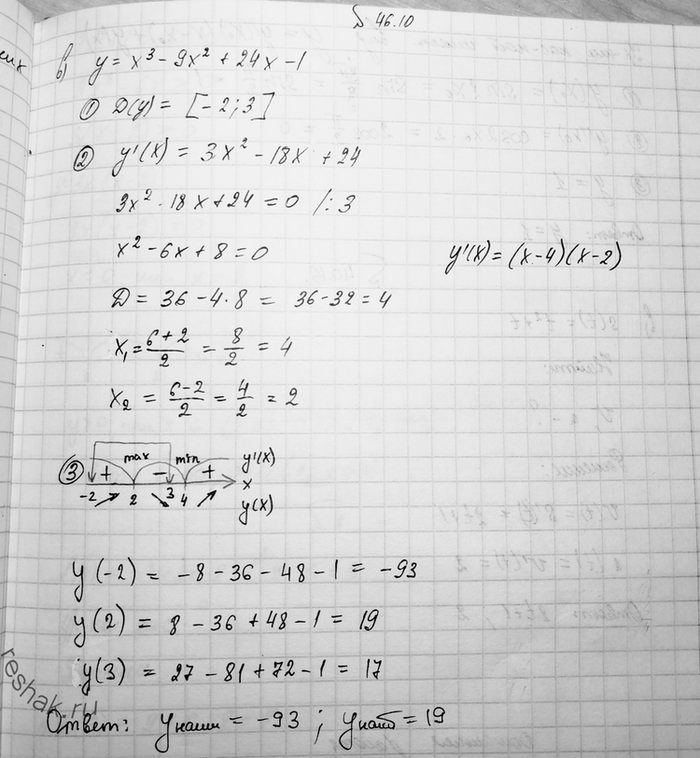 § 46.10
в) y = x³ - 9x² + 24x - 1
① D(y) = [-2; 3]
② y'(x) = 3x² - 18x + 24
3x² - 18x + 24 = 0 /:3
x² - 6x + 8 = 0
y'(x) = (x-4)(x-2)
D = 36 - 4·8 = 36-32 = 4
x₁ = (6+2)/2 = 8/2 = 4
x₂ = (6-2)/2 = 4/2 = 2
③ + max − min + y'(x)
-2 2 3 4 x
y(x)
y(-2) = -8 - 36 - 48 - 1 = -93
y(2) = 8 - 36 + 48 - 1 = 19
y(3) = 27 - 81 + 72 - 1 = 17
Ответ: yнаим = -93 ; yнаиб = 19
reshak.ru